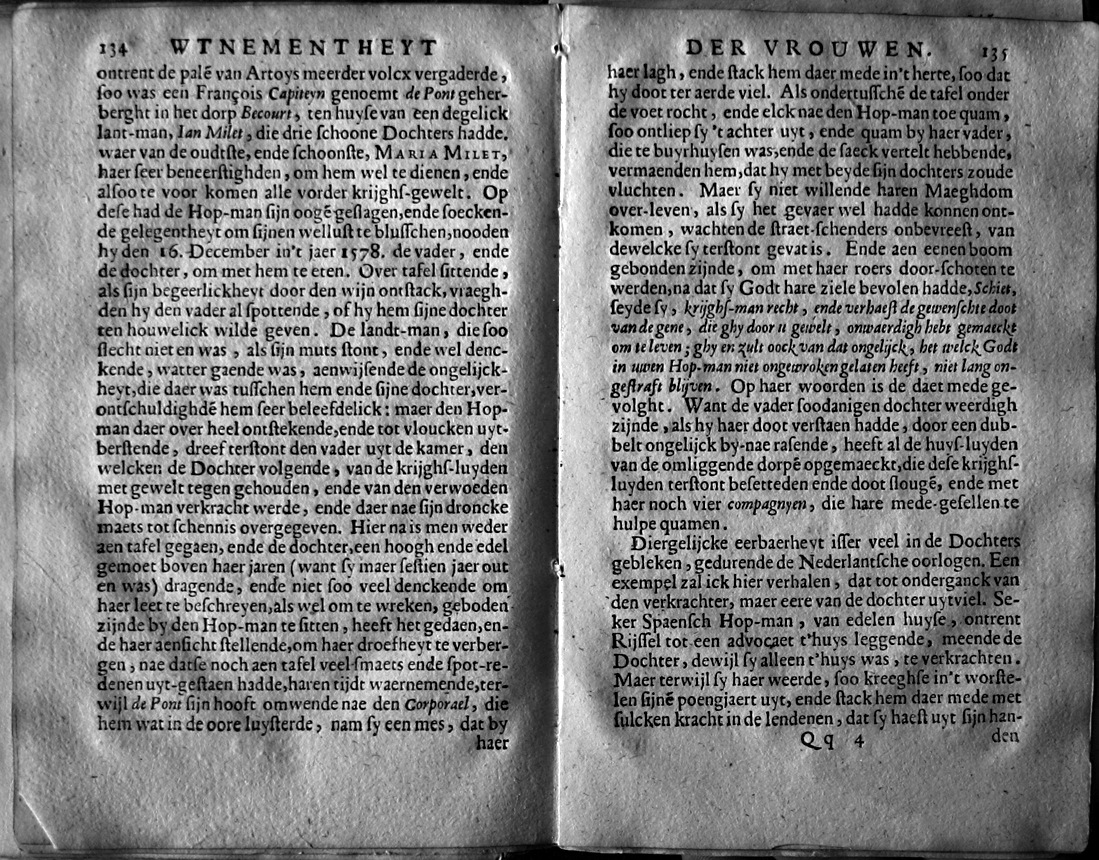 134 WTNEMENTHEYT
ontrent de palē van Artoys meerder volcx vergaderde,
ſoo was een François Capiteyn genoemt de Pont geher-
berght in het dorp Becourt, ten huyſe van een degelick
lant-man, Ian Milet, die drie ſchoone Dochters hadde.
waer van de oudtſte, ende ſchoonſte, MARIA MILET,
haer ſeer beneerſtighden, om hem wel te dienen, ende
alſoo te voor komen alle vorder krijghſ-gewelt. Op
deſe had de Hop-man ſijn oogē geſlagen, ende ſoecken-
de gelegentheyt om ſijnen welluſt te bluſſchen, nooden
hy den 16. December in't jaer 1578. de vader, ende
de dochter, om met hem te eten. Over tafel ſittende,
als ſijn begeerlickheyt door den wijn ontſtack, vraegh-
den hy den vader al ſpottende, of hy hem ſijne dochter
ten houwelick wilde geven. De landt-man, die ſoo
ſlecht niet en was, als ſijn muts ſtont, ende wel denc-
kende, watter gaende was, aenwijſende de ongelijck-
heyt, die daer was tuſſchen hem ende ſijne dochter, ver-
ontſchuldighdē hem ſeer beleefdelick: maer den Hop-
man daer over heel ontſtekende, ende tot vloucken uyt-
berſtende, dreef terſtont den vader uyt de kamer, den
welcken de Dochter volgende, van de krijghſ-luyden
met gewelt tegen gehouden, ende van den verwoeden
Hop-man verkracht werde, ende daer nae ſijn droncke
maets tot ſchennis overgegeven. Hier na is men weder
aen tafel gegaen, ende de dochter, een hoogh ende edel
gemoet boven haer jaren (want ſy maer ſeſtien jaer out
en was) dragende, ende niet ſoo veel denckende om
haer leet te beſchreyen, als wel om te wreken, geboden
zijnde by den Hop-man te ſitten, heeft het gedaen, en-
de haer aenſicht ſtellende, om haer droefheyt te verber-
gen, nae datſe noch aen tafel veel ſmaets ende ſpot-re-
denen uyt-geſtaen hadde, haren tijdt waernemende, ter-
wijl de Pont ſijn hooft omwende nae den Corporael, die
hem wat in de oore luyſterde, nam ſy een mes, dat by
haer
DER VROUWEN. 135
haer lagh, ende ſtack hem daer mede in't herte, ſoo dat
hy doot ter aerde viel. Als ondertuſſchē de tafel onder
de voet rocht, ende elck nae den Hop-man toe quam,
ſoo ontliep ſy 't achter uyt, ende quam by haer vader,
die te buyrhuyſen was, ende de ſaeck vertelt hebbende,
vermaenden hem, dat hy met beyde ſijn dochters zoude
vluchten. Maer ſy niet willende haren Maeghdom
over-leven, als ſy het gevaer wel hadde konnen ont-
komen, wachten de ſtraet-ſchenders onbevreeſt, van
dewelcke ſy terſtont gevat is. Ende aen eenen boom
gebonden zijnde, om met haer roers door-ſchoten te
werden, na dat ſy Godt hare ziele bevolen hadde, Schiet,
ſeyde ſy, krijghſ-man recht, ende verhaeſt de gewenſchte doot
van de gene, die ghy door u gewelt, onwaerdigh hebt gemaeckt
om te leven; ghy en zult oock van dat ongelijck, het welck Godt
in uwen Hop-man niet ongewroken gelaten heeft, niet lang on-
geſtraft blijven. Op haer woorden is de daet mede ge-
volght. Want de vader ſoodanigen dochter weerdigh
zijnde, als hy haer doot verſtaen hadde, door een dub-
belt ongelijck by-nae raſende, heeft al de huyſ-luyden
van de omliggende dorpē opgemaeckt, die deſe krijghſ-
luyden terſtont beſetteden ende doot ſlougē, ende met
haer noch vier compagnyen, die hare mede-geſellen te
hulpe quamen.
Diergelijcke eerbaerheyt iſſer veel in de Dochters
gebleken, gedurende de Nederlantſche oorlogen. Een
exempel zal ick hier verhalen, dat tot onderganck van
den verkrachter, maer eere van de dochter uytviel. Se-
ker Spaenſch Hop-man, van edelen huyſe, ontrent
Rijſſel tot een advocaet t'huys leggende, meende de
Dochter, dewijl ſy alleen t'huys was, te verkrachten.
Maer terwijl ſy haer weerde, ſoo kreeghſe in't worſte-
len ſijnē poengjaert uyt, ende ſtack hem daer mede met
ſulcken kracht in de lendenen, dat ſy haeſt uyt ſijn han-
Qq 4 den